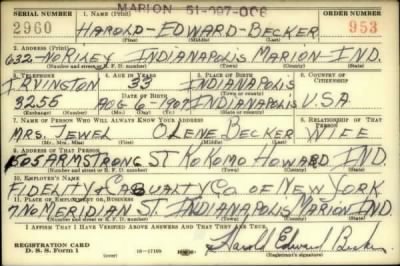 MARION 51-097-006
SERIAL NUMBER 1. NAME (Print) ORDER NUMBER
2960 HAROLD - EDWARD - BECKER 953
(First) (Middle) (Last)
2. ADDRESS (Print)
632 - NO RILEY INDIANAPOLIS MARION IND.
(Number and street or R. F. D. number) (Town) (County) (State)
3. TELEPHONE 4. AGE IN YEARS 5. PLACE OF BIRTH 6. COUNTRY OF CITIZENSHIP
IRVINGTON 33 INDIANAPOLIS
DATE OF BIRTH
3255 AUG 6-1907 INDIANAPOLIS U.S.A
7. NAME OF PERSON WHO WILL ALWAYS KNOW YOUR ADDRESS 8. RELATIONSHIP OF THAT PERSON
MRS. JEWEL OLENE BECKER WIFE
(Mr., Mrs., Miss) (First) (Middle) (Last)
9. ADDRESS OF THAT PERSON
1505 ARMSTRONG ST KOKOMO HOWARD IND.
(Number and street or R. F. D. number) (Town) (County) (State)
10. EMPLOYER'S NAME
FIDELITY & CASUALTY CO. OF NEW YORK
11. PLACE OF EMPLOYMENT OR BUSINESS
7 NO MERIDIAN ST. INDIANAPOLIS MARION IND.
(Number and street or R. F. D. number) (Town) (County) (State)
I AFFIRM THAT I HAVE VERIFIED ABOVE ANSWERS AND THAT THEY ARE TRUE.
REGISTRATION CARD
D. S. S. Form 1 16-17105 Harold Edward Becker
(Registrant's signature)